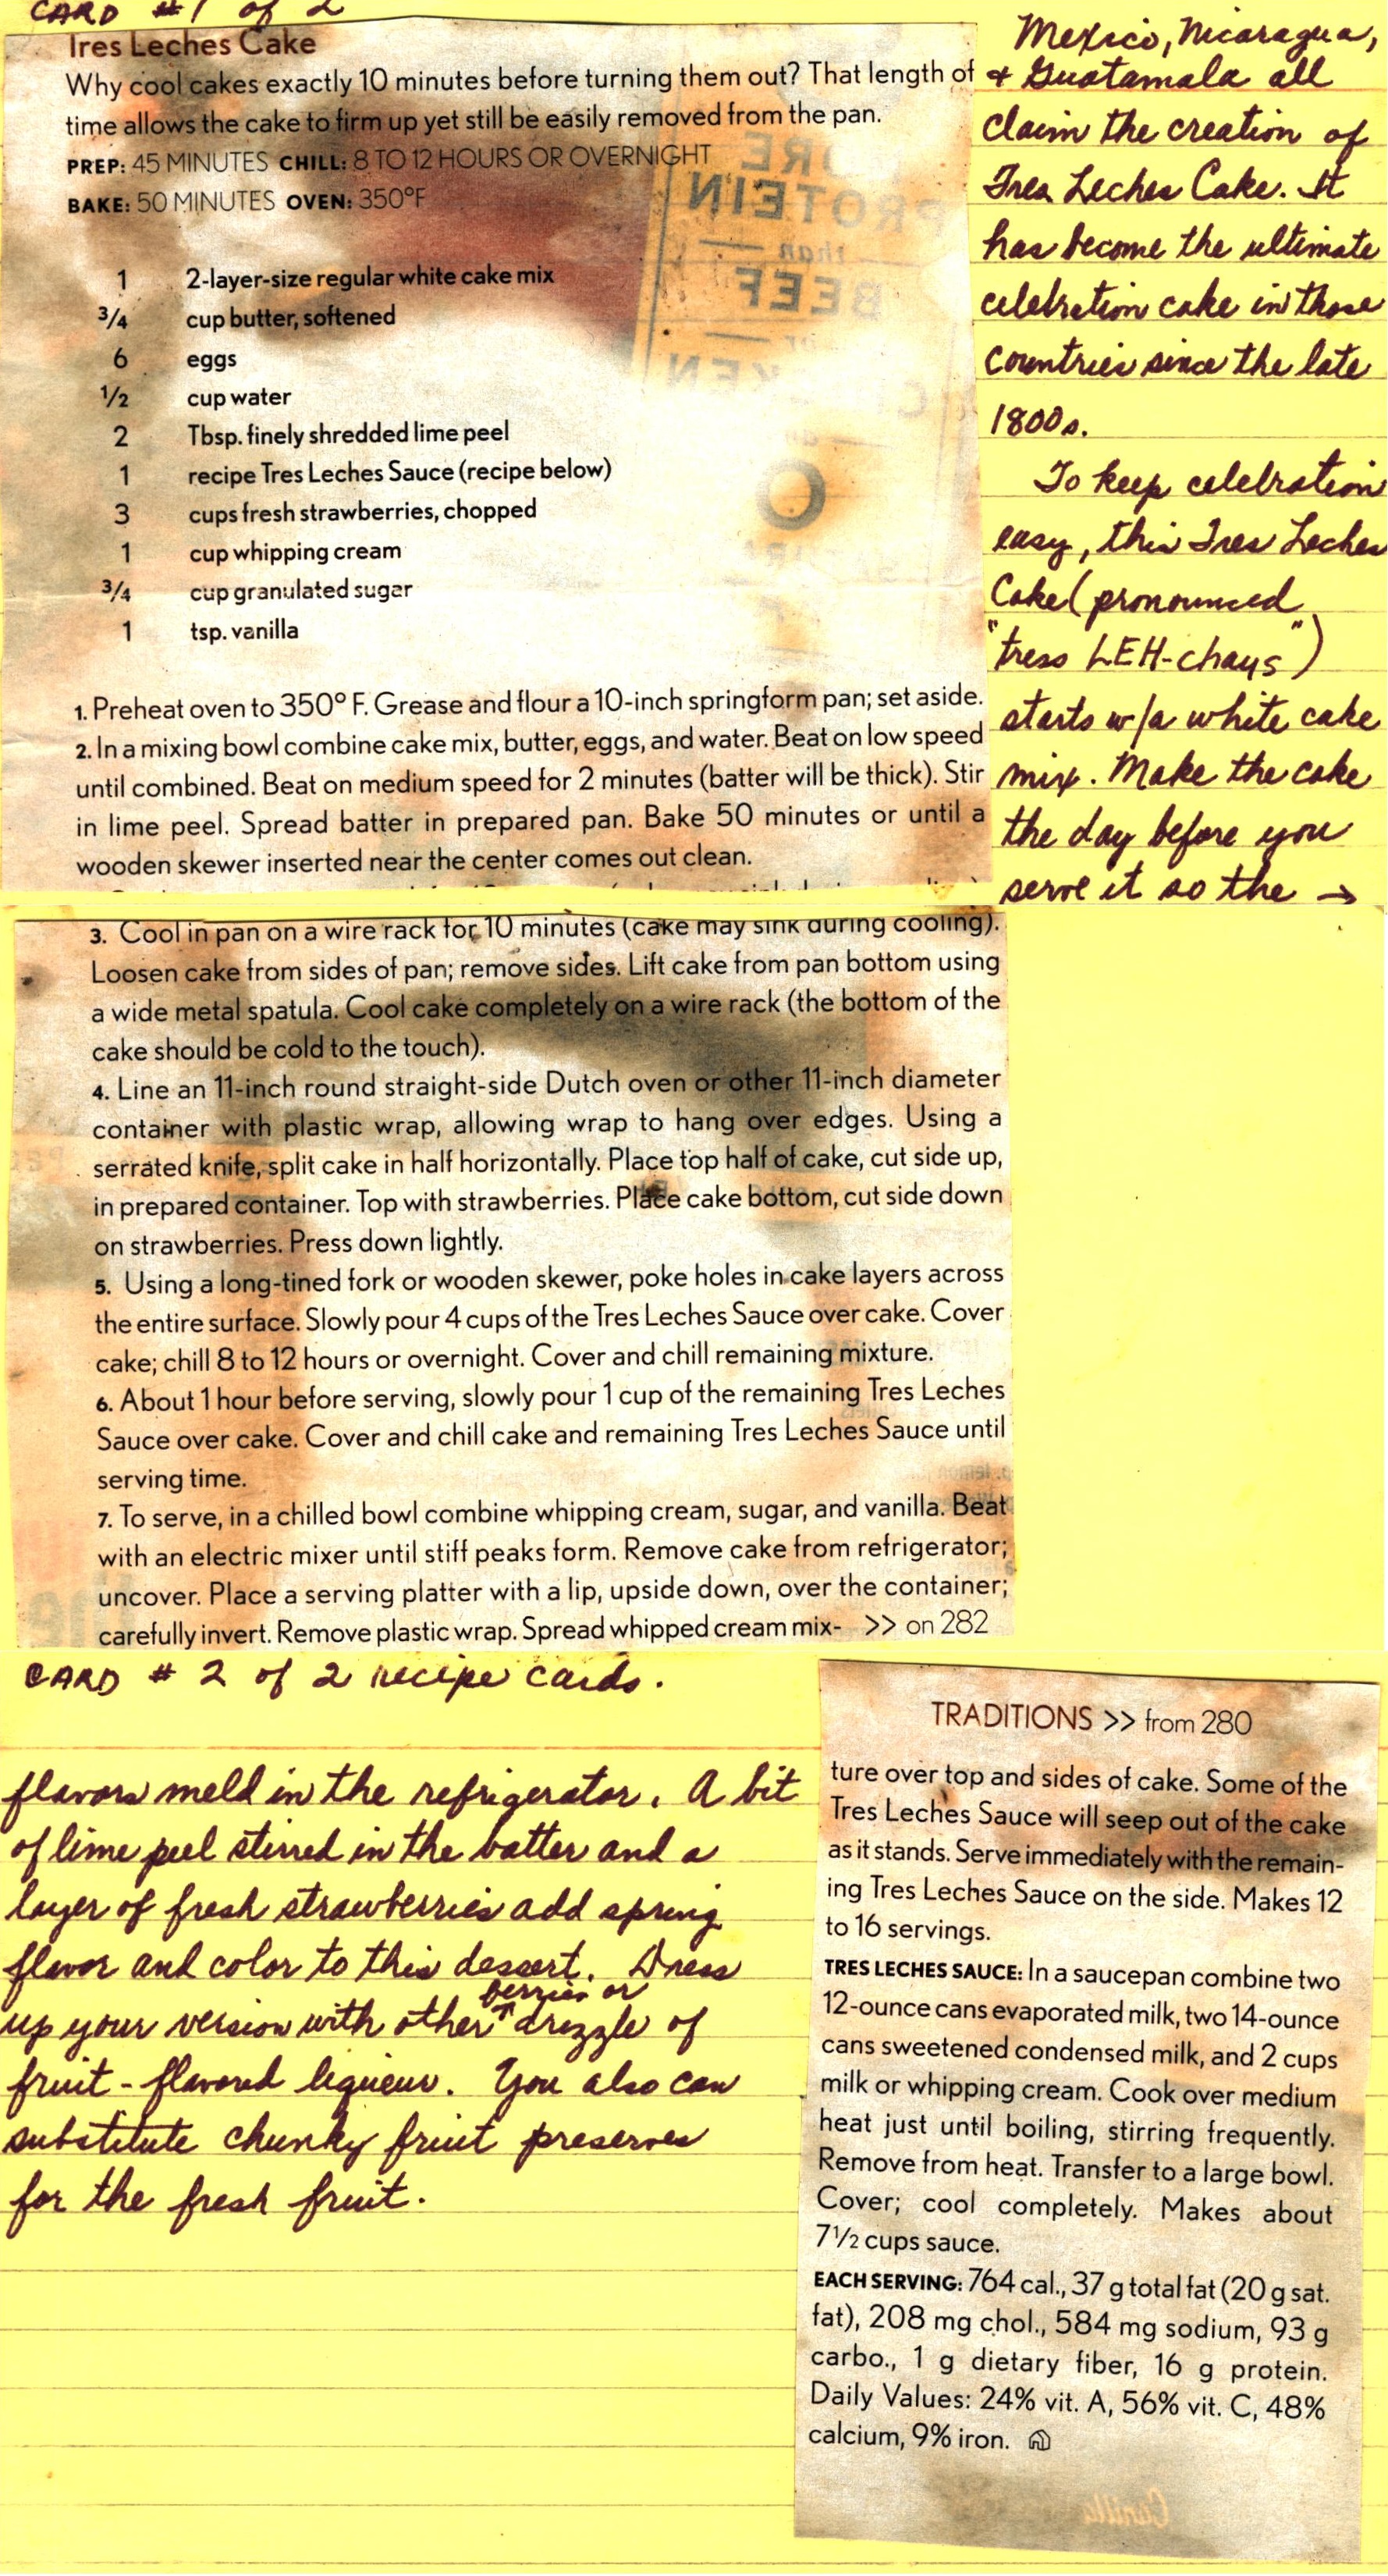 CARD #1 of 2
Tres Leches Cake
Why cool cakes exactly 10 minutes before turning them out? That length of
time allows the cake to firm up yet still be easily removed from the pan.
PREP: 45 MINUTES CHILL: 8 TO 12 HOURS OR OVERNIGHT
BAKE: 50 MINUTES OVEN: 350°F
1 2-layer-size regular white cake mix
3/4 cup butter, softened
6 eggs
1/2 cup water
2 Tbsp. finely shredded lime peel
1 recipe Tres Leches Sauce (recipe below)
3 cups fresh strawberries, chopped
1 cup whipping cream
3/4 cup granulated sugar
1 tsp. vanilla
1. Preheat oven to 350° F. Grease and flour a 10-inch springform pan; set aside.
2. In a mixing bowl combine cake mix, butter, eggs, and water. Beat on low speed
until combined. Beat on medium speed for 2 minutes (batter will be thick). Stir
in lime peel. Spread batter in prepared pan. Bake 50 minutes or until a
wooden skewer inserted near the center comes out clean.
Mexico, Nicaragua,
+ Guatamala all
claim the creation of
Tres Leches Cake. It
has become the ultimate
celebration cake in those
countries since the late
1800s.
To keep celebration
easy, this Tres Leches
Cake (pronounced
"tress LEH-chays")
starts w/a white cake
mix. Make the cake
the day before you
serve it so the →
3. Cool in pan on a wire rack for 10 minutes (cake may sink during cooling).
Loosen cake from sides of pan; remove sides. Lift cake from pan bottom using
a wide metal spatula. Cool cake completely on a wire rack (the bottom of the
cake should be cold to the touch).
4. Line an 11-inch round straight-side Dutch oven or other 11-inch diameter
container with plastic wrap, allowing wrap to hang over edges. Using a
serrated knife, split cake in half horizontally. Place top half of cake, cut side up,
in prepared container. Top with strawberries. Place cake bottom, cut side down
on strawberries. Press down lightly.
5. Using a long-tined fork or wooden skewer, poke holes in cake layers across
the entire surface. Slowly pour 4 cups of the Tres Leches Sauce over cake. Cover
cake; chill 8 to 12 hours or overnight. Cover and chill remaining mixture.
6. About 1 hour before serving, slowly pour 1 cup of the remaining Tres Leches
Sauce over cake. Cover and chill cake and remaining Tres Leches Sauce until
serving time.
7. To serve, in a chilled bowl combine whipping cream, sugar, and vanilla. Beat
with an electric mixer until stiff peaks form. Remove cake from refrigerator;
uncover. Place a serving platter with a lip, upside down, over the container;
carefully invert. Remove plastic wrap. Spread whipped cream mix- >> on 282
CARD # 2 of 2 recipe cards.
flavors meld in the refrigerator. A bit
of lime peel stirred in the batter and a
layer of fresh strawberries add spring
flavor and color to this dessert. Dress
berries or
up your version with other ↑ drizzle of
fruit-flavored liqueur. You also can
substitute chunky fruit preserves
for the fresh fruit.
TRADITIONS >> from 280
ture over top and sides of cake. Some of the
Tres Leches Sauce will seep out of the cake
as it stands. Serve immediately with the remain-
ing Tres Leches Sauce on the side. Makes 12
to 16 servings.
TRES LECHES SAUCE: In a saucepan combine two
12-ounce cans evaporated milk, two 14-ounce
cans sweetened condensed milk, and 2 cups
milk or whipping cream. Cook over medium
heat just until boiling, stirring frequently.
Remove from heat. Transfer to a large bowl.
Cover; cool completely. Makes about
7 1/2 cups sauce.
EACH SERVING: 764 cal., 37 g total fat (20 g sat.
fat), 208 mg chol., 584 mg sodium, 93 g
carbo., 1 g dietary fiber, 16 g protein.
Daily Values: 24% vit. A, 56% vit. C, 48%
calcium, 9% iron.